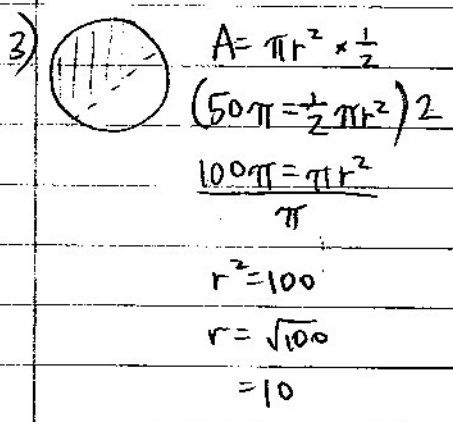 3)
A = πr² × 1/2
(50π = 1/2 πr²) 2
100π = πr²
π
r² = 100
r = √100
= 10